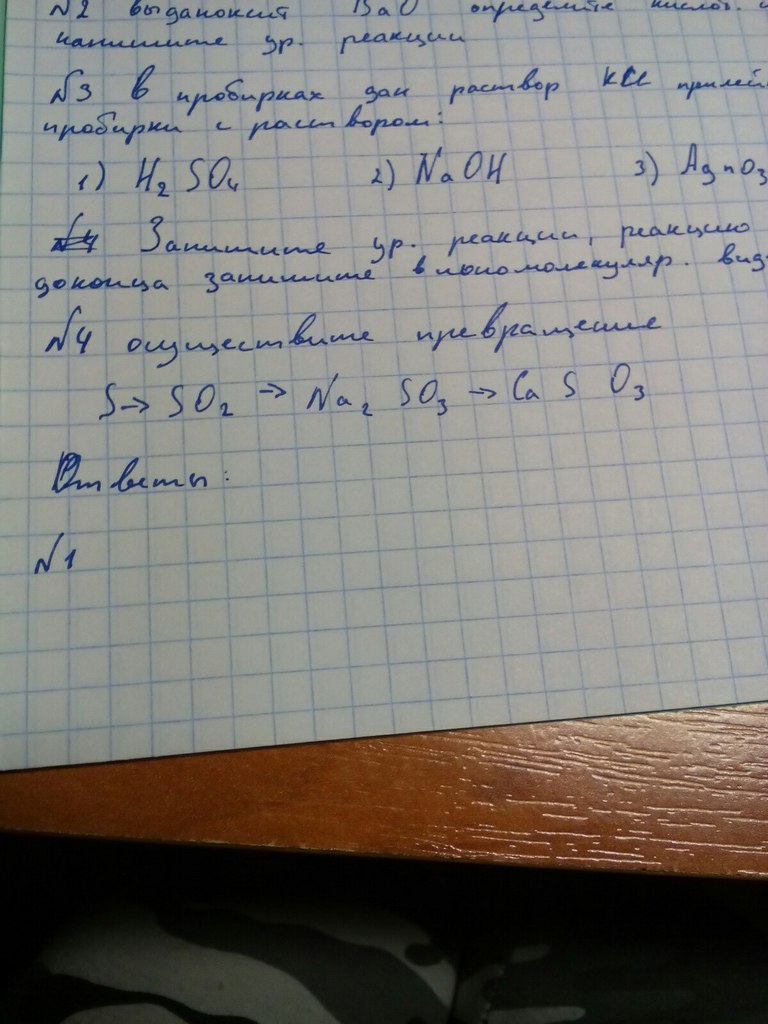 №2 выдан оксид BaO определите кислот.
напишите ур. реакции
№3 в пробирках дан раствор KCl прилей
пробирки с раствором:
1) H2SO4 2) NaOH 3) AgnO3
Запишите ур. реакции, реакцию
доконца запишите в иономолекуляр. вид
№4 осуществите превращение
S→ SO2 → Na2 SO3 → Ca S O3
Ответы:
№1